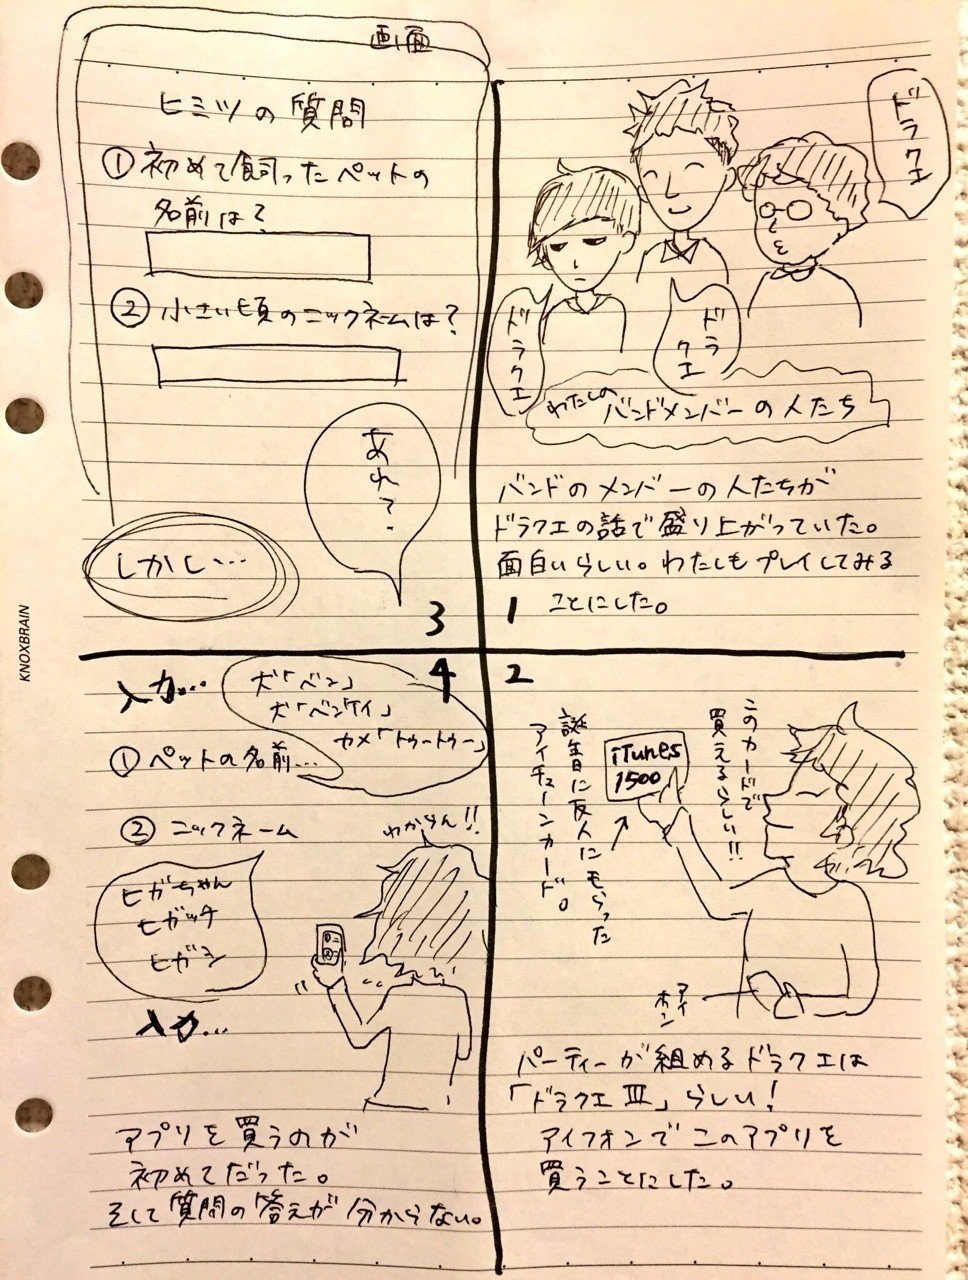 ドラクエ
ドラクエ
ドラクエ
わたしの
バンドメンバーの人たち
バンドのメンバーの人たちが
ドラクエの話で盛り上がっていた。
面白いらしい。わたしもプレイしてみる
ことにした。
1
2
このカードで
買えるらしい!!
iTunes
1500
誕生日に友人にもらった
アイチューンカード。
アイ
ホン
パーティーが組めるドラクエは
「ドラクエⅢ」らしい!
アイフォンでこのアプリを
買うことにした。
画面
ヒミツの質問
①初めて飼ったペットの
名前は?
②小さい頃のニックネームは?
あれ?
しかし…
3
4
入力…
犬「ベン」
犬「ベンケイ」
カメ「トゥートゥー」
①ペットの名前…
②ニックネーム
わからん!!
ヒガちゃん
ヒガッチ
ヒガシ
入力…
アプリを買うのが
初めてだった。
そして質問の答えが分からない。
KNOXBRAIN